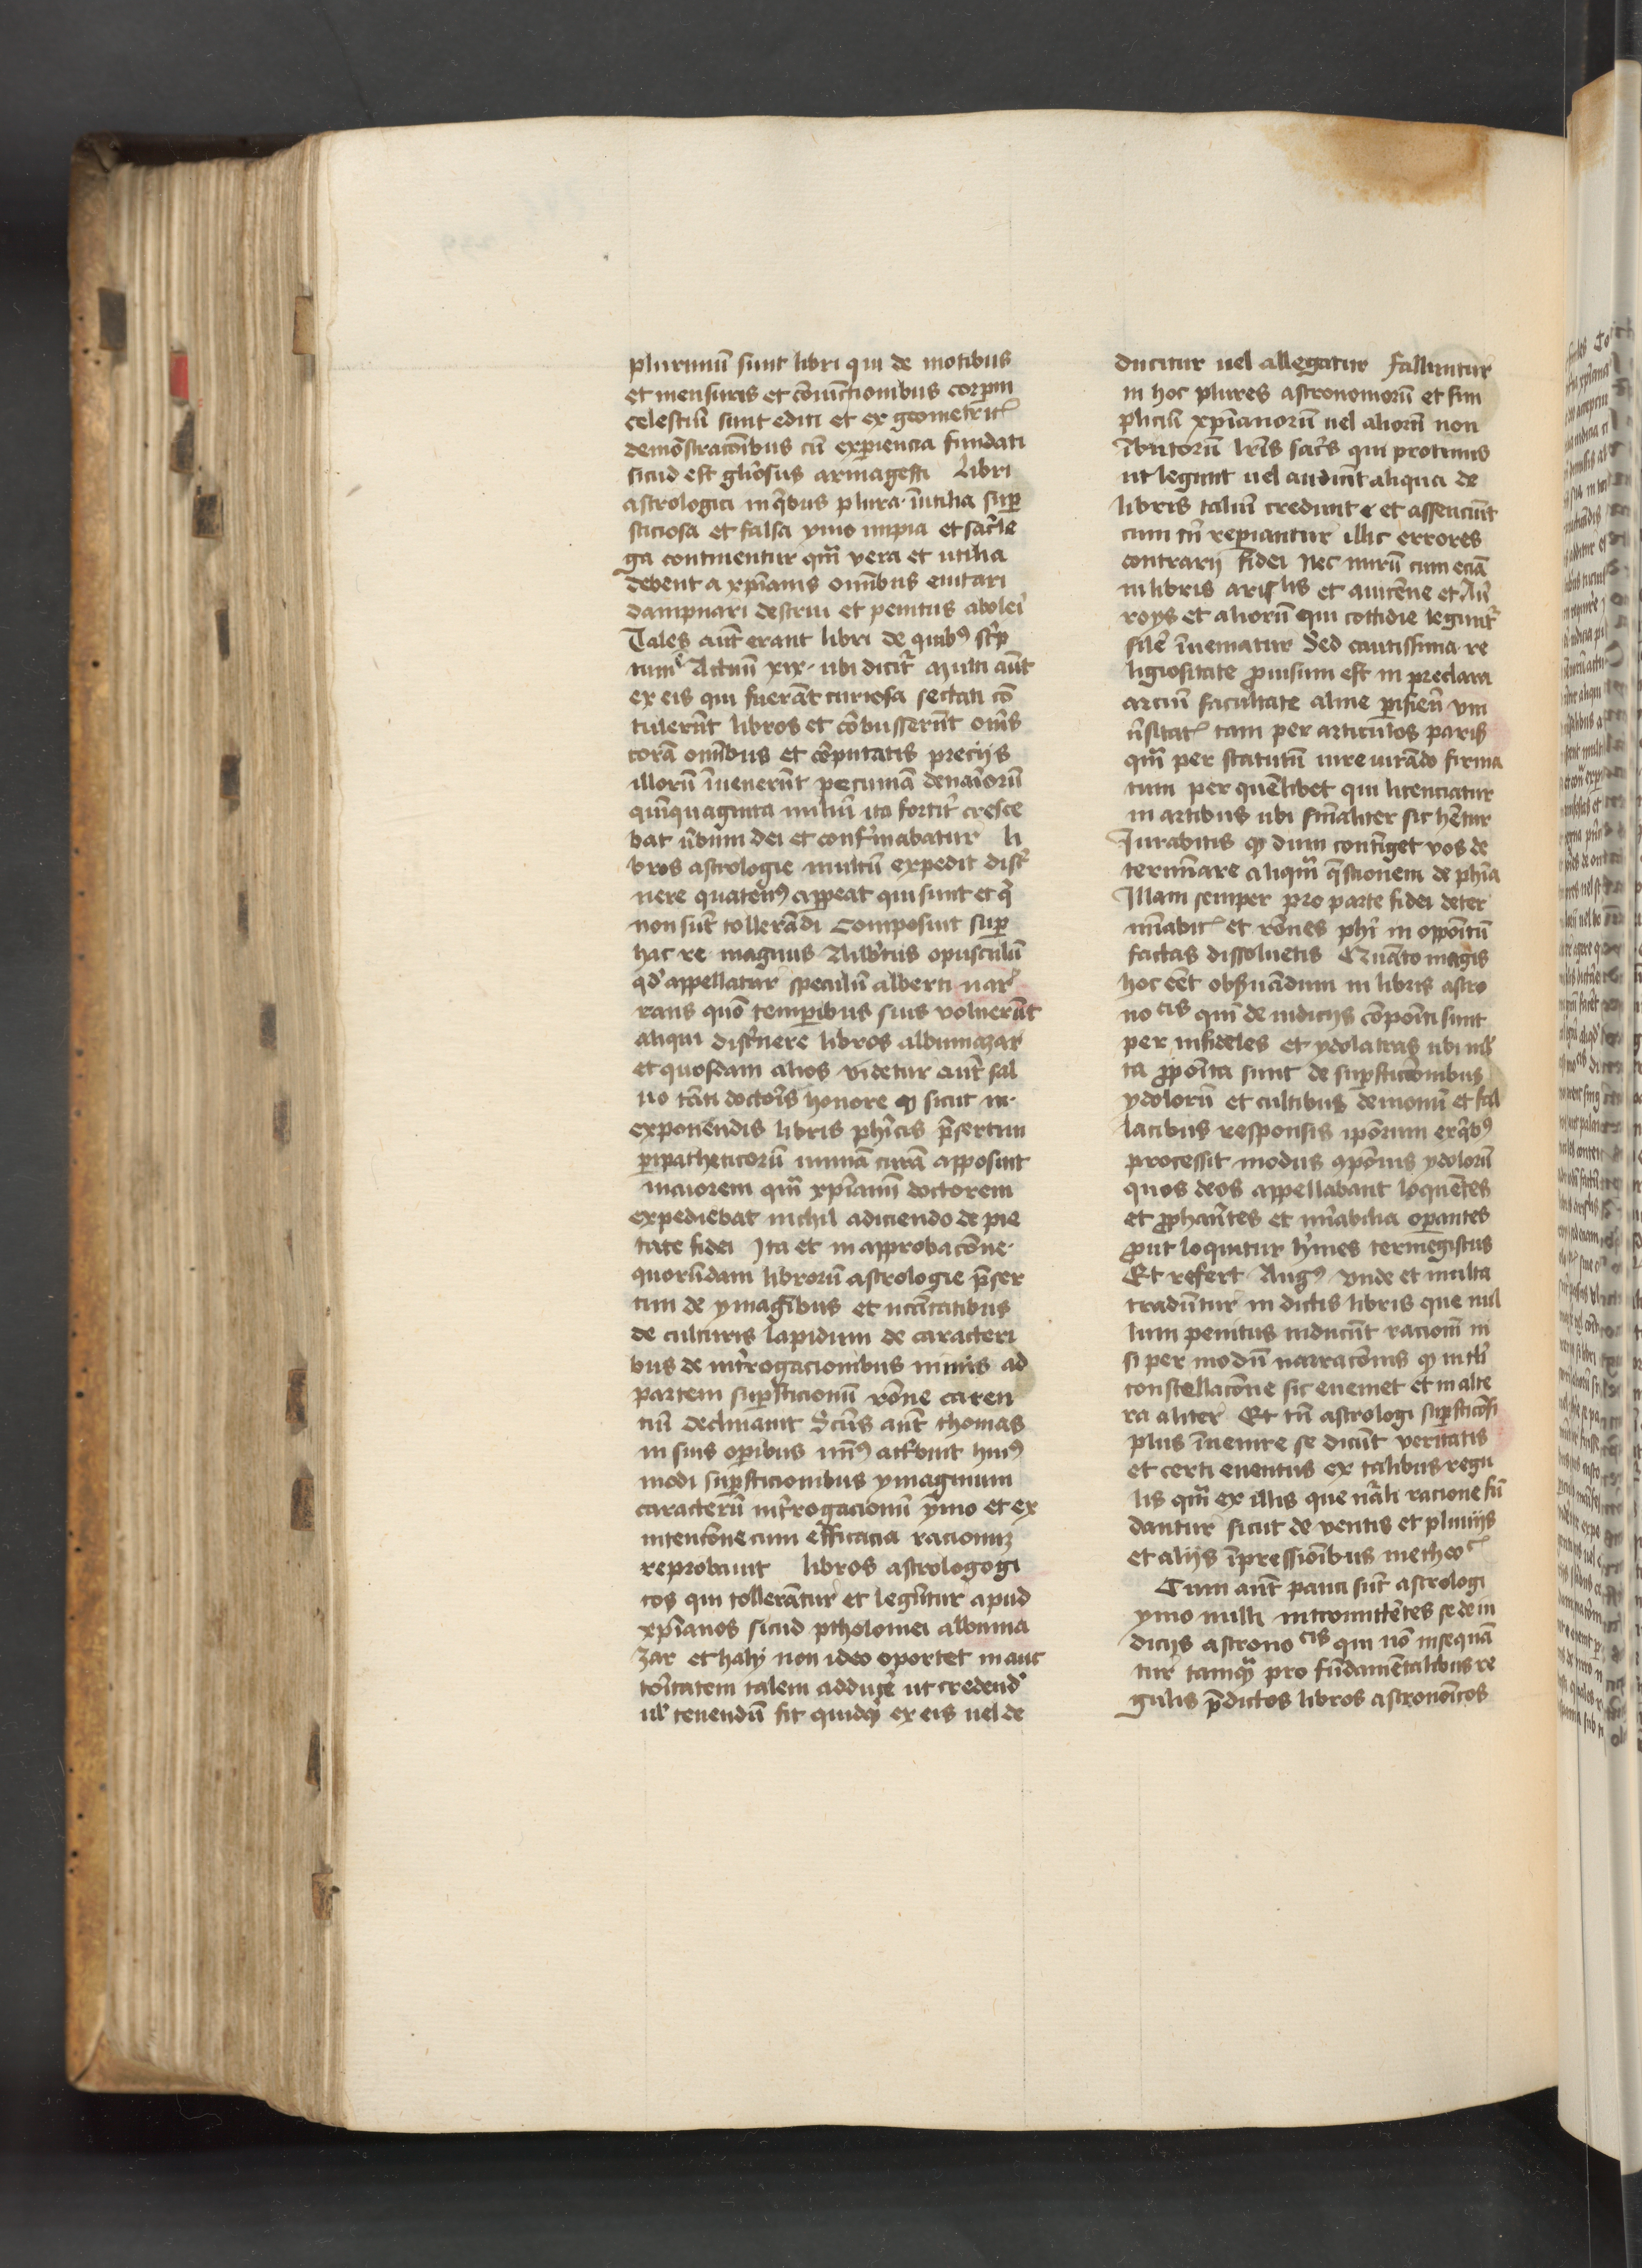 plurimū sunt libri qui de motibus
et mensuris et cōiunctionibus corpm
celestiū sunt editi et ex geometric̄
demōstracōibus cū experiencia fundati
sicud est gl̄iosus armagesti Libri
astrologici in qibus plura inutilia sup
sticiosa et falsa ymo impia et sac̄le
ga continentur qm̄ vera et utilia
debent a xp̄ianis omībus euitari
dampnari destrui et penitus aboleī
Tales aūt erant libri de quibꝰ sc̄p
tum ē Actuū xix · ubi dicit̄ Multi aūt
ex eis qui fuerāt curiosa sectati cō
tulerūt libros et cōbusserūt om̄s
corā omībus et cōputatis preciis
illorū īuenerūt pecuniā denariorū
quīquaginta miliū ita fortit̄ cresce
bat ūbum dei et confirmabatur li
bros astrologie multū expedit disc̄
nere quatenꝰ appeat qui sunt et q̄
non sūt tollerādi Composuit sup
hac re magnus Albtus opusculū
qd̄ appellatur speculū alberti nar
rans quō temporibus suis voluerūt
aliqui disc̄nere libros albumazar
et quosdam alios videtur aut̄ sal
uo tāti doctoris honore ꝙ sicut in·
exponēdis libris phīcis p̄sertim
peripatheticorū nimiā curā apposuit
maiorem qm̄ xp̄ianū doctorem
expediebat nichil adiciendo de pie
tate fidei Ita et in approbacōne·
quorūdam librorū astrologie p̄ser
tim de ymagībus et incātatibus
de culturis lapidum de caracteri
bus de int̄rogacionibus nimis ad
partem supsticionū rōne caren
tiū declinauit Sc̄us aūt thomas
in suis opibus mīꝰ att̄buit huiꝰ
modi supsticionibus ymaginum
caracterū int̄rogacionū ymo et ex
intencōne cum efficacia racionum
reprobauit libros astrologogi
cos qui tollerātur et legūtur apud
xp̄ianos sicud ptholomei albuma
zar et haly non ideo oportet in auc
toritatem talem adducē ut credend̄
ul̄ tenendū sit quidqͥ ex eis uel de
ducitur uel allegatur Falluntur
in hoc plures astronomorū et sim
pliciū xp̄ianorū uel aliorū non
ībutorū lr̄is sac̄s qui protinus
ut legunt uel audiūt aliqua de
libris taliū credunt et assenciūt
cum tn̄ reperiantur illic errores
contrarij fidei Nec mirū cum eciā
in libris aris lis et auicēne et Au
roys et aliorū qui cottidie legunt̄
sile īueniatur Sed cautissima re
ligiositate prouisum est in preclara
arciū facultate alme parisien̄ vni
ūsitat̄ tam per articulos paris
qm̄ per statutū iure iurādo firma
tum per quēlibet qui licenciatur
in artibus ubi finaliter sic hētur
Jurabitis ꝙ dum contiget vos de
termīare aliqm̄ q̄stionem de phīa
Illam semper pro parte fidei deter
mīabit̄ et rōnes phī in oppōitū
factas dissoluetis Quāto magis
hoc eēt obseruādum in libris astro
no cis qui de iudiciis cōpoīti sunt
per infideles et ydolatras ubi ml̄
ta p̄poīta sunt de supsticiōnibus
ydolorū et cultibus demonū et fal
lacibus responsis ipōrum ex qibꝰ
processit modus cpōnis ydolorū
quos deos appellabant loquētes
et prophātes et mīabilia opantes
prout loquitur h̄mes termegistus
Et refert Augꝰ Vnde et multa
tradūtur in dictis libris que nul
lum penitus inducūt racionē ni
si per modū narracōnis ꝙ in tl̄i
constellacōne sic euenet et in alte
ra aliter Et tn̄ astrologi supsticōsi
plus īuenire se dicūt veritatis
et certi euentus ex talibus regu
lis qm̄ ex illis que nāli racione fū
dantur sicut de ventis et pluuiis
et aliis īpressionibus metheoc̄
Cum aūt pauci sūt astrologi
ymo nulli intromittētes se de iu
diciis astrono cis qui nō insequā
tur tamqͣ pro fūdamētalibus re
gulis p̄dictos libros astronoīcos